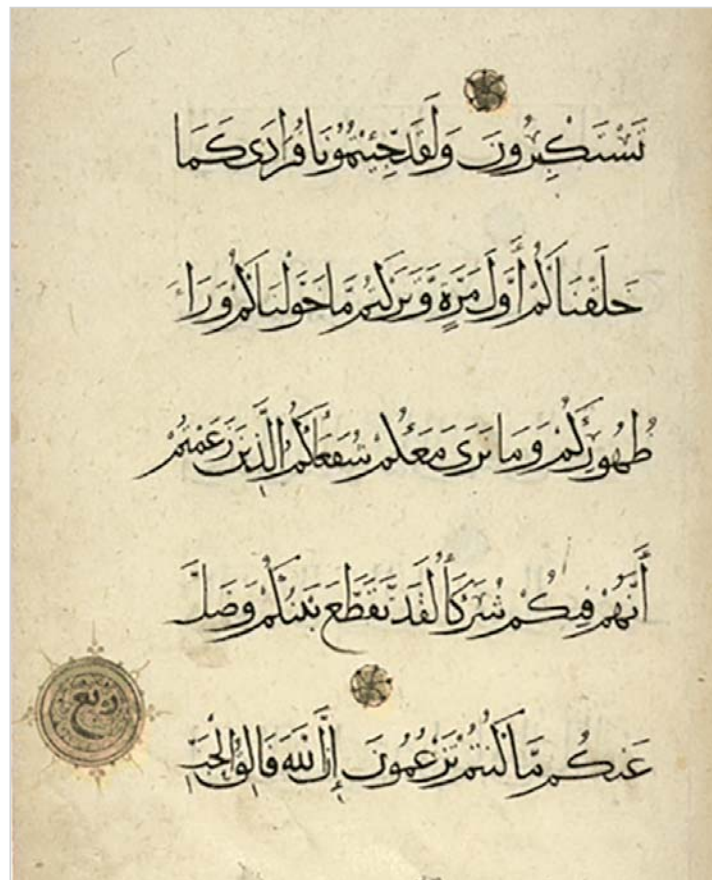 تَسْتَكْبِرُونَ وَلَقَدْ جِئْتُمُونَا فُرَادَى كَمَا
خَلَقْنَاكُمْ أَوَّلَ مَرَّةٍ وَتَرَكْتُمْ مَّا خَوَّلْنَاكُمْ وَرَاءَ
ظُهُورِكُمْ وَمَا نَرَى مَعَكُمْ شُفَعَاءَكُمُ الَّذِينَ زَعَمْتُمْ
أَنَّهُمْ فِيكُمْ شُرَكَاءُ لَقَد تَّقَطَّعَ بَيْنَكُمْ وَضَلَّ
ربع
عَنكُم مَّا كُنتُمْ تَزْعُمُونَ إِنَّ اللَّهَ فَالِقُ الْحَبِّ